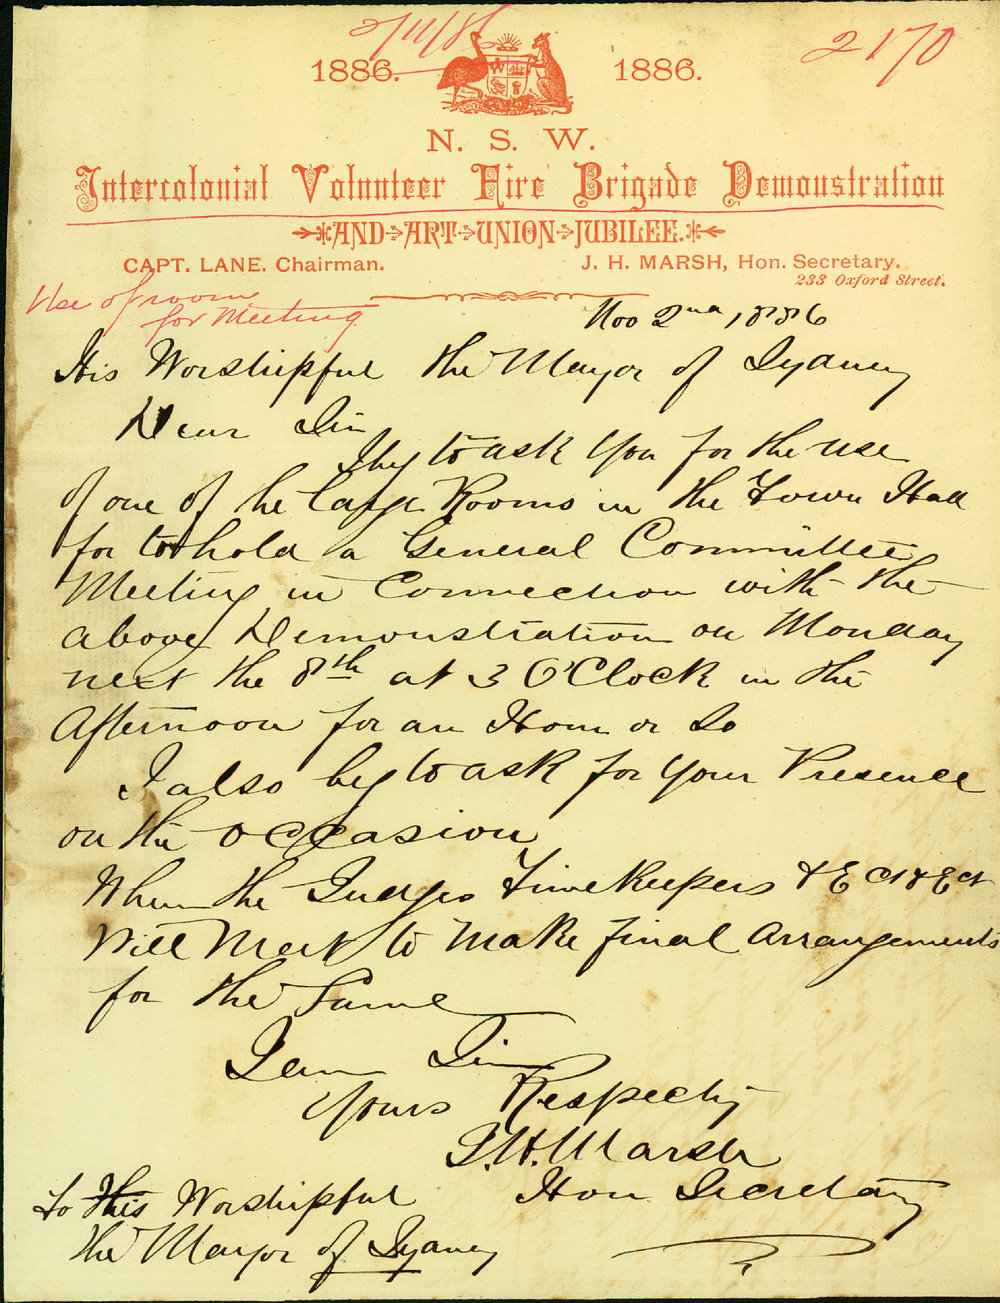 2/11/86
2170
1886. 1886.
N. S. W.
Intercolonial Volunteer Fire Brigade Demonstration
AND ART UNION JUBILEE.
CAPT. LANE. Chairman. J. H. MARSH, Hon. Secretary.
233 Oxford Street.
Use of room
for Meeting
Nov 2nd 1886
His Worshipful the Mayor of Sydney
Dear Sir
I beg to ask You for the use
of one of he large Rooms in the Town Hall
for to hold a General Committee
Meeting in Connection with the
above Demonstration on Monday
next the 8th at 3 O'Clock in the
Afternoon for an Hour or So
I also beg to ask for your Presence
on the occasion
When the Judges Timekeepers & Ect & Ect
Will Meet to Make final Arrangements
for the Same
I am Sir
Yours Respectly
J. H. Marsh
Hon Secretary
To His Worshipful
the Mayor of Sydney